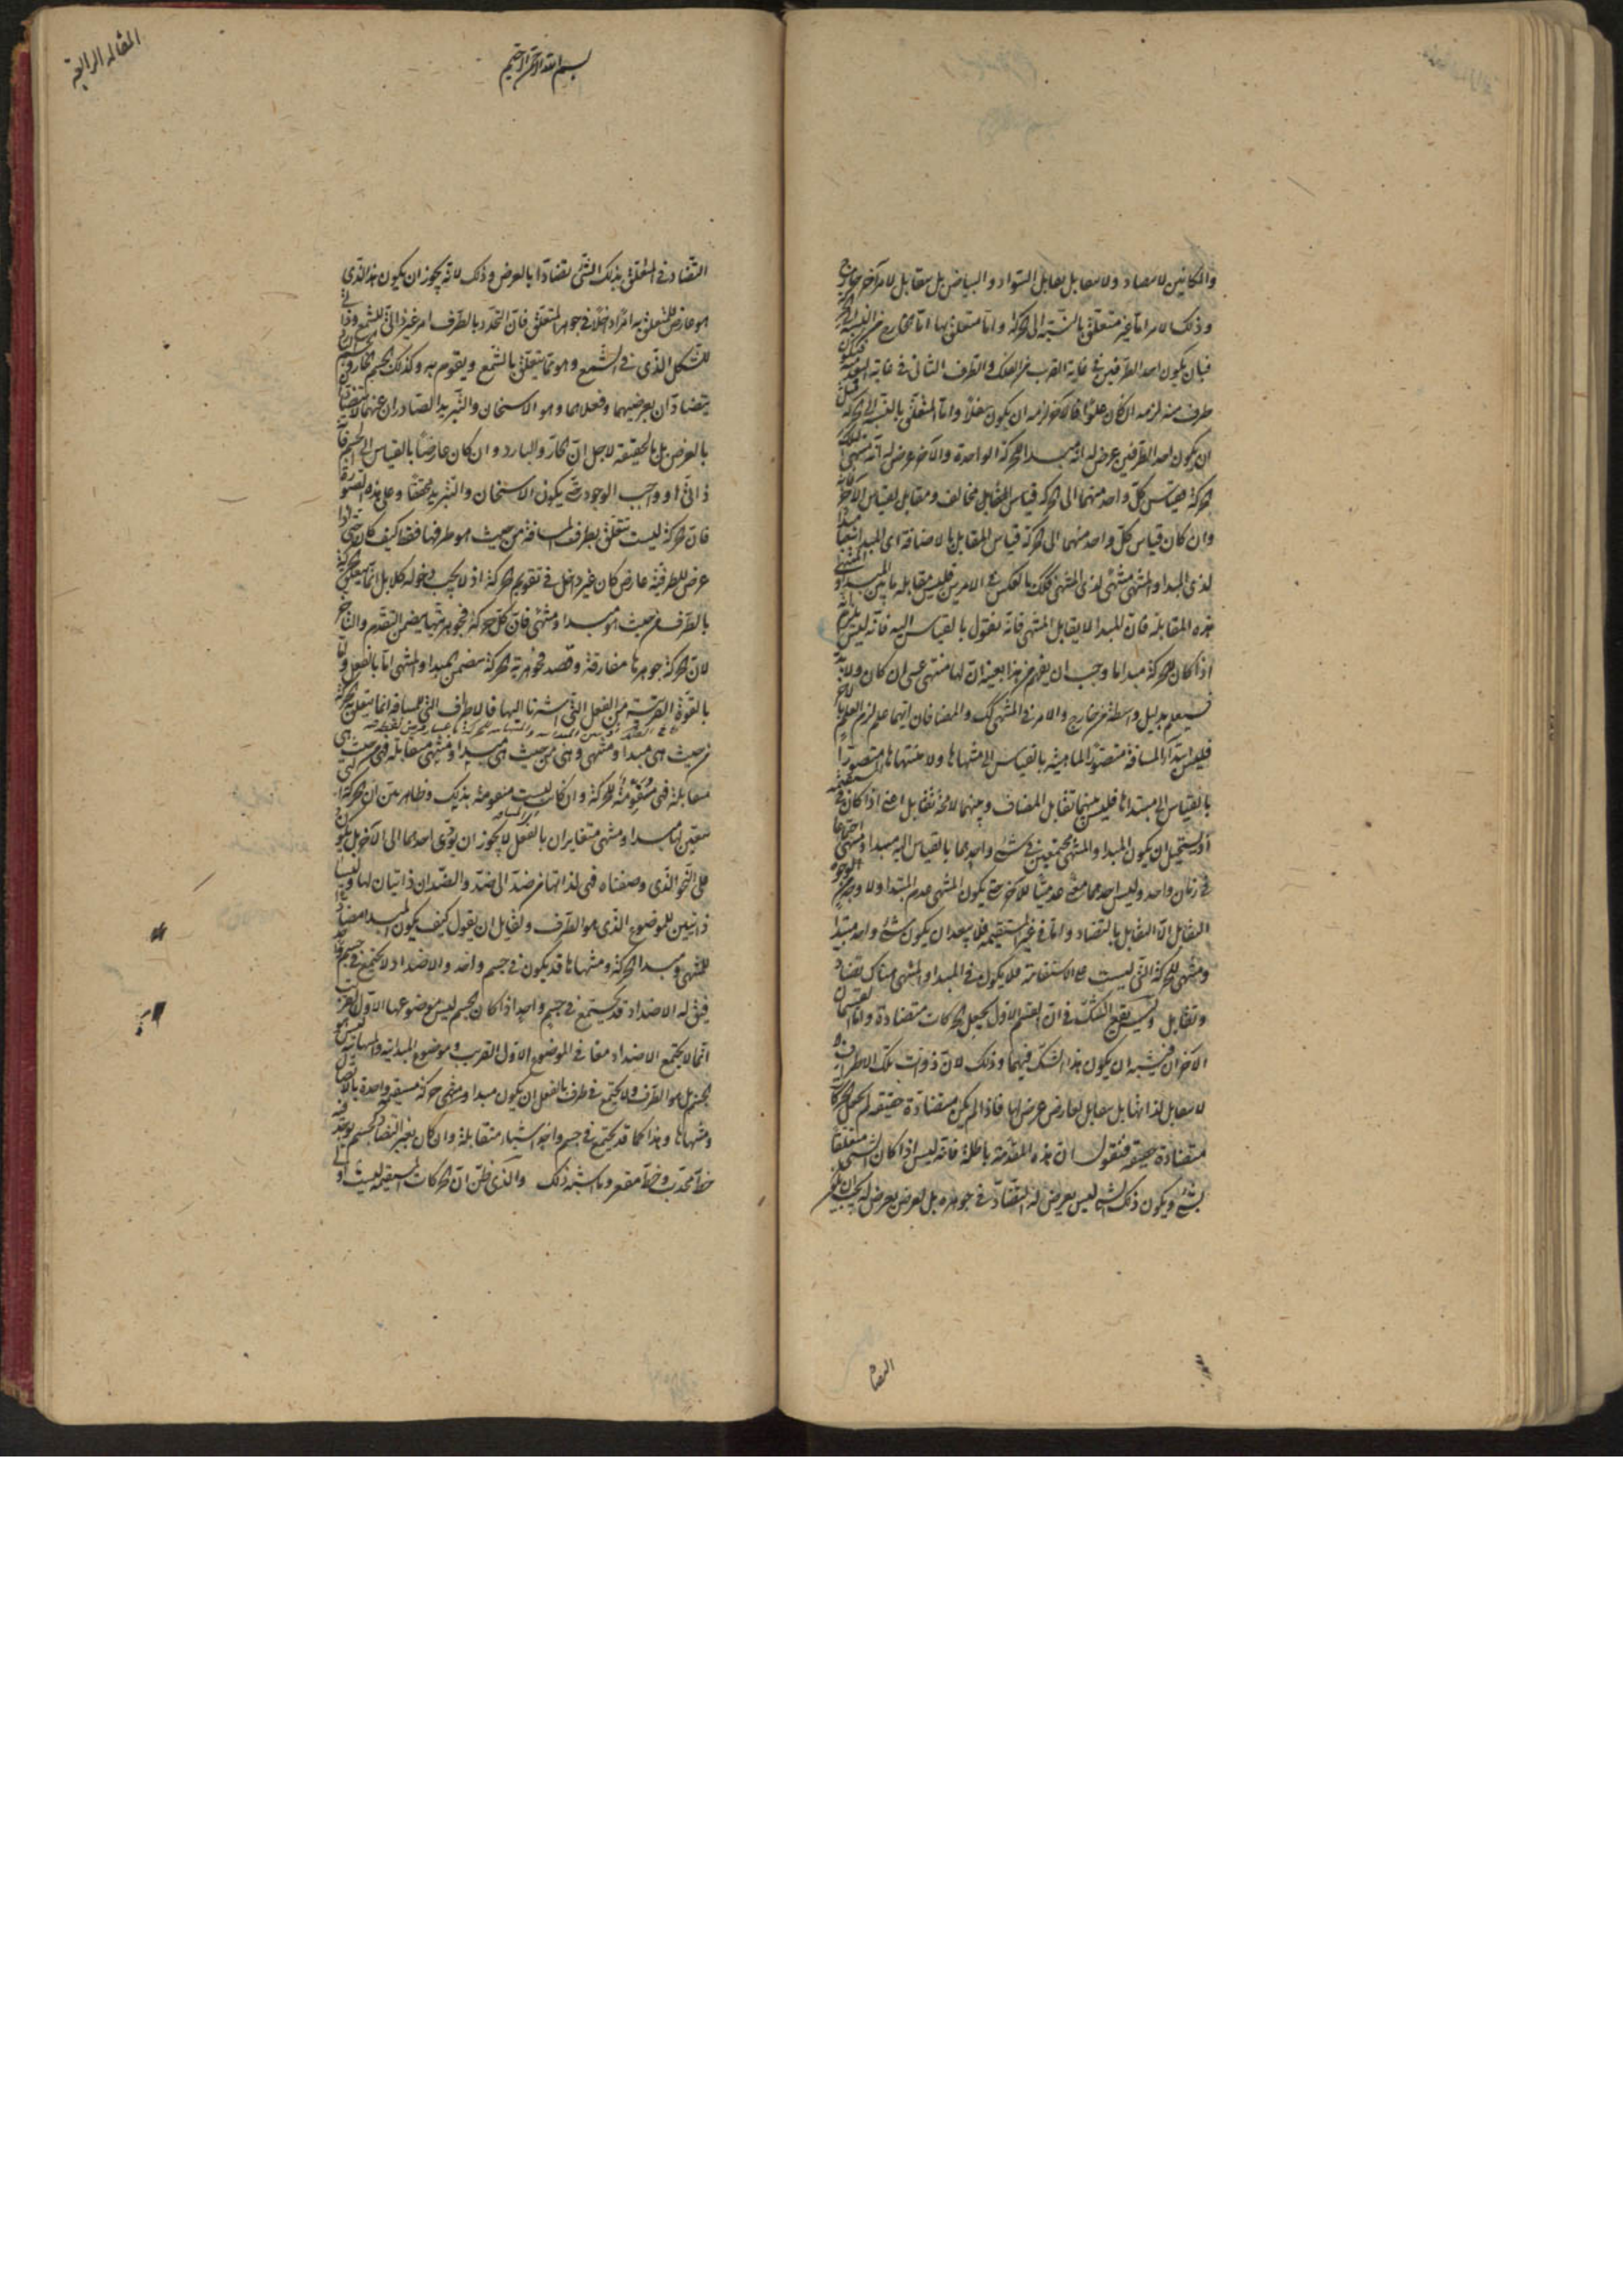 والمكانين لا يتضاد ولا يتقابل تقابل السواد والبياض بل يتقابل لامر آخر خارج
وذلك لامر اما غير متعلق بالنسبة الى الحركة واما متعلق بها اما الخارج من النسبة الى الحركة
فبان يكون احد الطرفين في غاية القرب من الفلك والطرف الثانى في غاية البعد فيكون
طرف منه لزمه ان كان علوا والآخر لزمه ان يكون سفلا واما المتعلق بالنسبة الى الحركة فمثل
ان يكون احد الطرفين عرض له انه مبدأ الحركة الواحدة والآخر عرض له انه منتهى تلك
الحركة فقياس كل واحد منهما الى الحركة قياس المقابل مخالف ومقابل لقياس الآخر
وان كان قياس كل واحد منهما الى الحركة قياس المقابل بالاضافة اى المبدا مبدا
لذى المبدا والمنتهى منتهى لذى المنتهى كذلك بالعكس في الامرين فليس مقابلة ما بين المبدا والمنتهى
هذه المقابلة فان المبدا لا يقابل المنتهى فانه مقول بالقياس اليه فانه ليس يلزم
اذا كان للحركة مبدا ما وجب ان يفهم من هذا بعينه ان لها منتهى عسى ان كان ولابد
فسيعلم بدليل واسطة من خارج والامر في المنتهى كذلك والمضافان ايهما علم لزم العلم بالآخر
فليس مبدأ المسافة متصور الماهية بالقياس الى منتهاها ولا منتهاها متصورا
بالقياس الى مبتداها فليس بينهما تقابل المضاف وبينهما لا محة تقابل اعنى اذا كان في المستقيمة
اذ يستحيل ان يكون المبدا والمنتهى مجتمعين في شئ واحد هما بالقياس اليه مبدا ومنتهى
في زمان واحد وليس احدهما معنى عدميا للآخر حتى يكون المنتهى عدم المبتدا ولا وجه من الوجوه
التقابل الا التقابل بالتضاد واما في غير المستقيمة فلا يبعد ان يكون شئ واحد مبتدا
ومنتهى للحركة التى ليست على الاستقامة فلا يكون في المبدا والمنتهى هناك تضاد
وتقابل وليس يقع الشك في ان القسم الاول يجعل الحركات متضادة واما القسمان
الآخران فيشبه ان يكون هذا الشك فيهما وذلك لان ذوات تلك الاطراف
لا يتقابل لذاتها بل يتقابل لعارض عرض لها فاذا لم يكن متضادة حقيقة لم يجعل الحركات
متضادة حقيقة فنقول ان هذه المقدمة باطلة فانه ليس اذا كان الشئ متعلقا
بشئ ويكون ذلك الشئ ليس يعرض له التضاد في جوهره بل لعرض يعرض له يجب ان يكون
التضاد
المقاله الرابعة
بسم الله الرحمن الرحيم
التضاد في المتعلق بذلك الشئ تضادا بالعرض وذلك لانه يجوز ان يكون هذا الذى
هو عارض للمتعلق به امرا داخلا في جوهر المتعلق فان التحدد بالطرف امر غير ذاتى للشمع وذاتى
للشكل الذى في الشمع وهو مما يتعلق بالشمع ويتقوم به وكذلك الجسم الحار والجسم البارد
يتضادان بعرضيهما وفعلاهما وهو الاسخان والتبريد الصادران عنهما لا يتضادان
بالعرض بل بالحقيقة لاجل ان الحار والبارد وان كان عارضا بالقياس الى الجسم فانه
ذاتى او واجب الوجود حتى يكون الاسخان والتبريد محققا وعلى هذه الصورة
فان الحركة ليست تتعلق بطرف المسافة من حيث هو طرفها فقط كيف كان حتى اذا
عرض للطرفية عارض كان غير داخل في تقويم الحركة اذ لا يجب دخوله كلا بل انما تتعلق الحركة
بالطرف من حيث هو مبدا ومنتهى فان كل حركة فجوهريتها يتضمن التقدم والتاخر
لان الحركة جوهرها مفارقة وقصد فجوهرية الحركة يتضمن المبدا والمنتهى اما بالفعل واما
بالقوة القريبة من الفعل التى اشرنا اليها فالاطراف التى للمسافة انما يتعلق بها الحركة
من حيث هى مبدا ومنتهى وهى من حيث هى مبدا ومنتهى متقابلة فهى من حيث هى
متقابلة فهى مقومة للحركة وان كانت ليست مقومة بذلك وظاهر بين ان الحركة التى
يتعين لها مبدا ومنتهى متغايران بالفعل لا يجوز ان يؤدى احدهما الى الآخر بل يكون
على النحو الذى وصفناه فهى لذاتها من ضد الى ضد والضدان ذاتيان لها وليسا
ذاتيين للموضوع الذى هو الطرف ولقايل ان يقول كيف يكون المبدا مضادا
للمنتهى ومبدا الحركة ومنتهاها قد يكون في جسم واحد والاضداد لا تجتمع في جسم واحد
فيق له الاضداد قد تجتمع في جسم واحد اذا كان الجسم ليس موضوعها الاول القريب
انما لا يجتمع الاضداد معا في الموضوع الاول القريب وموضوع المبدئية والمنتهائية ليس هو
الجسم بل هو الطرف ولا يجتمع في طرف بالفعل ان يكون مبدا ومنتهى حركة مستقيمة واحدة بالاتصال
ومنتهاها وهذا كما قد يجتمع في جسم واحد اشياء متقابلة وان كان بغير التضاد كجسم يوجد فيه
خط محدب وخط مقعر وما اشبه ذلك والذى ظن ان الحركات المستقيمة ليست